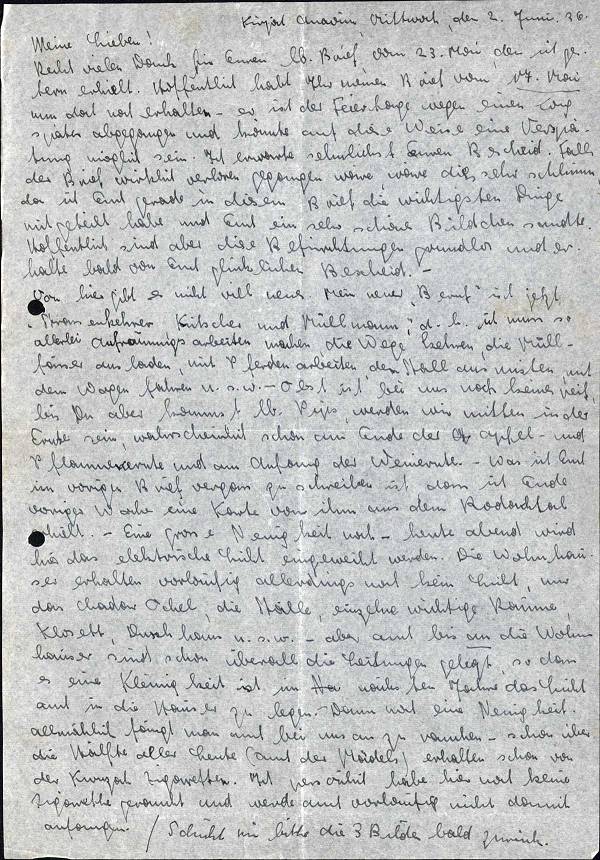 Kirjat Anavim, Mittwoch, den 2. Juni. 36.
Meine Lieben!
Recht vielen Dank für Euren lb. Brief, vom 23. Mai, den ich ges-
tern erhielt. Hoffentlich habt Ihr meinen Brief vom 17. Mai
nun doch noch erhalten - er ist der Feiertage wegen einen Tag
später abgegangen und könnte auf diese Weise eine Verspä-
tung möglich sein. Ich erwarte sehnlichst Euren Bescheid. Falls
der Brief wirklich verloren gegangen wäre, wäre dies sehr schlimm,
da ich Euch gerade in diesem Brief die wichtigsten Dinge
mitgeteilt habe und Euch ein sehr schönes Bildchen sandte.
Hoffentlich sind aber diese Befürchtungen grundlos und er-
halte bald von Euch glücklichen Bescheid. -
Von hier gibt es nicht viel neues. Mein neuer "Beruf" ist jetzt
"Strassenkehrer, Kutscher und Müllmann", d. h. ich muss so
allerlei Aufräumungsarbeiten machen, die Wege kehren, die Müll-
fässer ausladen, mit Pferden arbeiten den Stall ausmisten, mit
dem Wagen fahren u. s. w. - Obst ist bei uns noch keines reif,
bis Du aber kommst lb. , werden wir mitten in der
Ernte sein, wahrscheinlich schon am Ende der Apfel- und
Pflaumenernte und am Anfang der Weinernte. - Was ich Euch
im vorigen Brief vergass zu schreiben ist, dass ich Ende
voriger Woche eine Karte von ihm aus dem
erhielt. - Eine grosse Neuigkeit noch - heute abend wird
hier das elektrische Licht eingeweiht werden. Die Wohnhäu-
ser erhalten vorläufig allerdings noch kein Licht, nur
das Chadar Ochel, die Ställe, einzelne wichtige Räume,
Klosett, Duschhaus u. s. w. - aber auch bis an die Wohn-
häuser sind schon überall die Leitungen gelegt, so dass
es eine Kleinigkeit ist im nächsten Jahre das Licht
auch in die Häuser zu legen. - Dann noch eine Neuigkeit.
allmählich fängt man auch bei uns an zu rauchen - schon über
die Hälfte aller Leute (auch der Mädels) erhalten schon von
der Kwuzah Zigaretten. Ich persönlich habe hier noch keine
Zigarette geraucht und werde auch vorläufig nicht damit
anfangen. / Schickt mir bitte die 3 Bilder bald zurück.